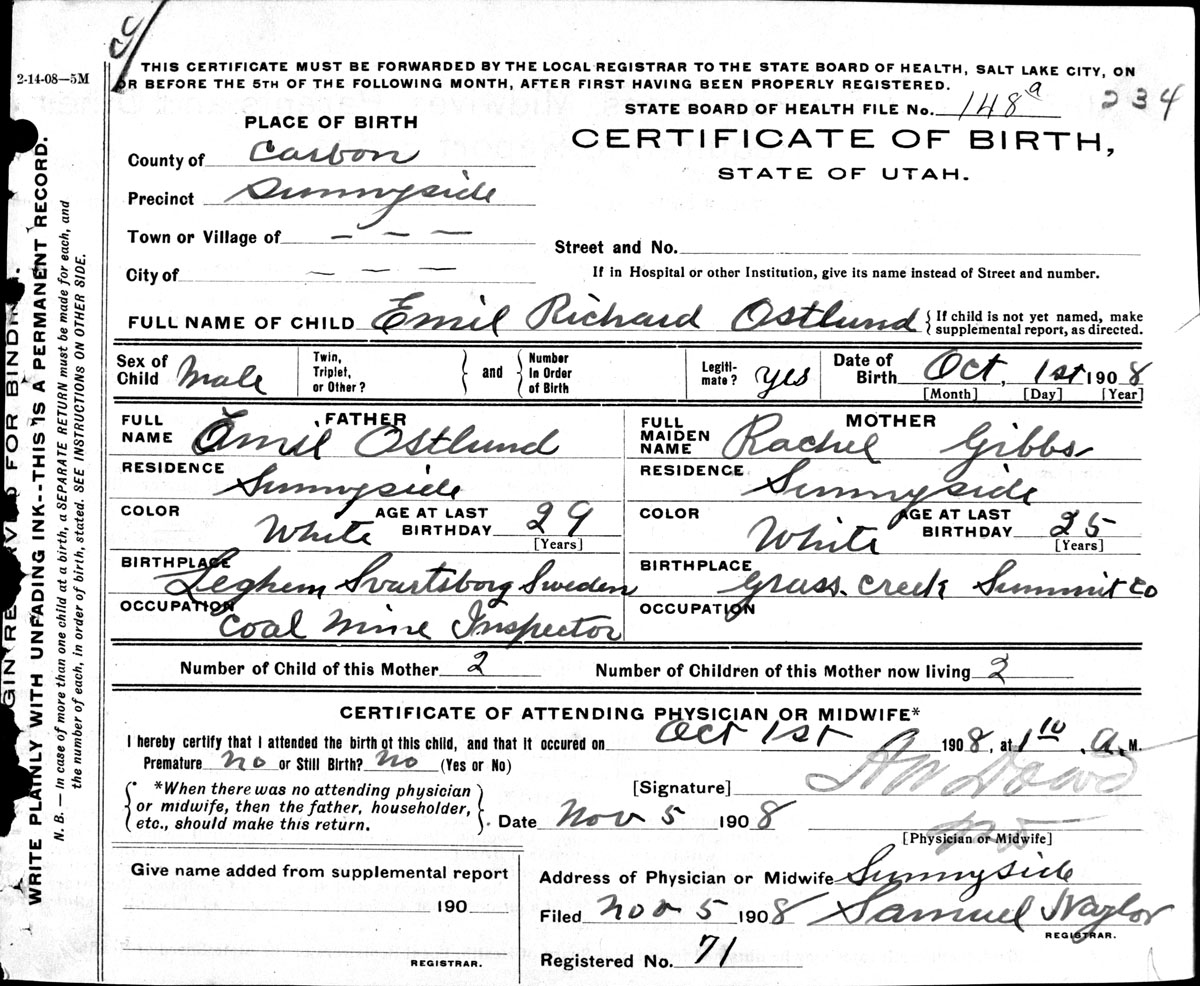 2-14-08—5M
THIS CERTIFICATE MUST BE FORWARDED BY THE LOCAL REGISTRAR TO THE STATE BOARD OF HEALTH, SALT LAKE CITY, ON
OR BEFORE THE 5TH OF THE FOLLOWING MONTH, AFTER FIRST HAVING BEEN PROPERLY REGISTERED.
STATE BOARD OF HEALTH FILE No. 148a 234
PLACE OF BIRTH
CERTIFICATE OF BIRTH,
STATE OF UTAH.
County of Carbon
Precinct Sunnyside
Town or Village of — — —
Street and No.
City of — — —
If in Hospital or other Institution, give its name instead of Street and number.
FULL NAME OF CHILD Emil Richard Ostlund {If child is not yet named, make supplemental report, as directed.
Sex of Child Male Twin, Triplet, or Other? } and { Number In Order of Birth Legiti-mate? yes Date of Birth Oct, 1st 1908
[Month] [Day] [Year]
FATHER
FULL NAME Emil Ostlund
RESIDENCE Sunnyside
COLOR White AGE AT LAST BIRTHDAY 29
[Years]
BIRTHPLACE Leghem Svartsborg Sweden
OCCUPATION Coal Mine Inspector
MOTHER
FULL MAIDEN NAME Rachel Gibbs
RESIDENCE Sunnyside
COLOR White AGE AT LAST BIRTHDAY 25
[Years]
BIRTHPLACE Grass Creek Summit Co
OCCUPATION
Number of Child of this Mother 2 Number of Children of this Mother now living 2
CERTIFICATE OF ATTENDING PHYSICIAN OR MIDWIFE*
I hereby certify that I attended the birth ot this child, and that it occured on Oct 1st 1908, at 1 10 a. M.
Premature no or Still Birth? no (Yes or No)
{*When there was no attending physician
or midwife, then the father, householder,
etc., should make this return.}
[Signature] A W Dowd
Date Nov 5 1908
[Physician or Midwife]
Give name added from supplemental report
190
REGISTRAR.
Address of Physician or Midwife Sunnyside
Filed Nov 5 1908 Samuel Naylor
REGISTRAR.
Registered No. 71
WRITE PLAINLY WITH UNFADING INK--THIS IS A PERMANENT RECORD.
N. B. — In case of more than one child at a birth, a SEPARATE RETURN must be made for each, and
the number of each, in order of birth, stated. SEE INSTRUCTIONS ON OTHER SIDE.